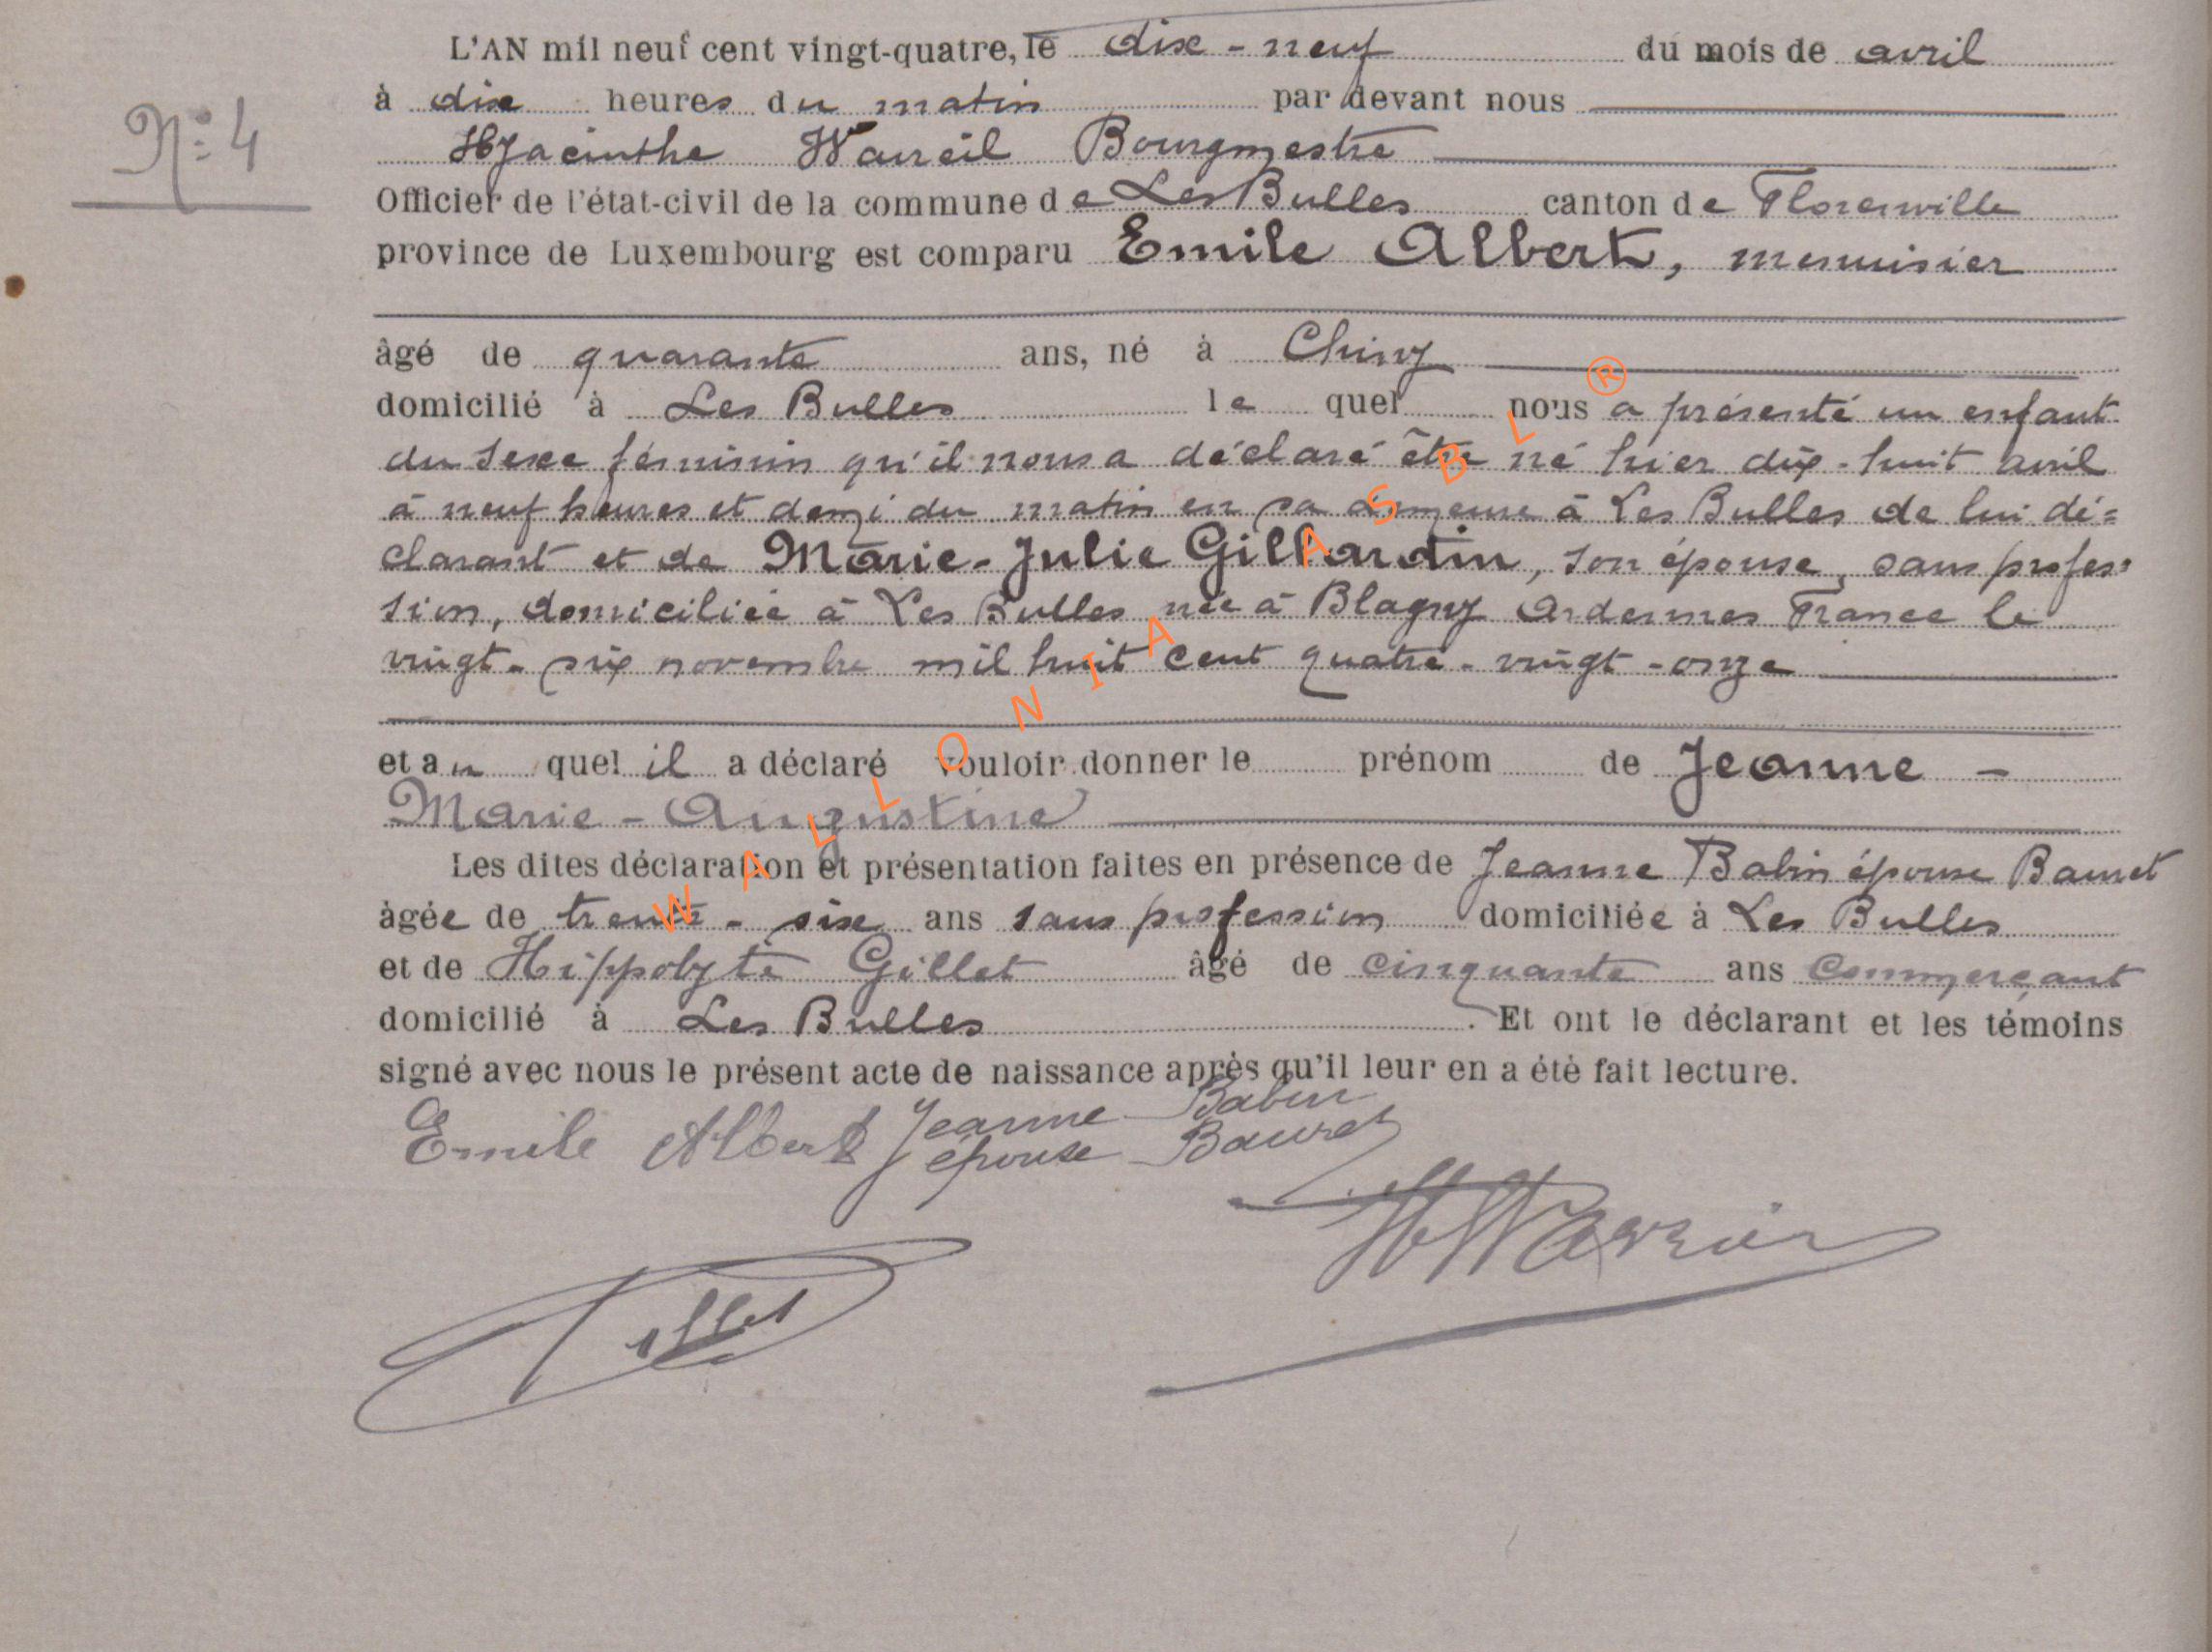 L'AN mil neuf cent vingt-quatre, le dixe - neuf du mois de avril
à dixe heures du matin par devant nous
N° 4
Hyacinthe Bourgmestre
Officier de l'état-civil de la commune de Les Bulles canton de Florenville
province de Luxembourg est comparu Emile Albert, menuisier
âgé de quarante ans, né à Chiny
domicilié à Les Bulles le quel nous a présenté un enfant
du sexe féminin qu'il nous a déclaré être né hier dix-huit avril
à neuf heures et demi du matin en sa demeure à Les Bulles de lui dé=
clarant et de Marie-Julie Gillardin, son épouse, sans profes=
sion, domiciliée à Les Bulles née à Blagny Ardennes France le
vingt-six novembre mil huit cent quatre-vingt-onze
et au quel il a déclaré vouloir donner le prénom de Jeanne -
Marie - Augustine
Les dites déclaration et présentation faites en présence de Jeanne Babin épouse Bauret
âgée de trente - sixe ans sans profession domiciliée à Les Bulles
et de Hippolyte Gillet âgé de cinquante ans commerçant
domicilié à Les Bulles. Et ont le déclarant et les témoins
signé avec nous le présent acte de naissance après qu'il leur en a été fait lecture.
Emile Albert Jeanne Babin
épouse Bauret
Gillet
WALLONIA ASBL ®